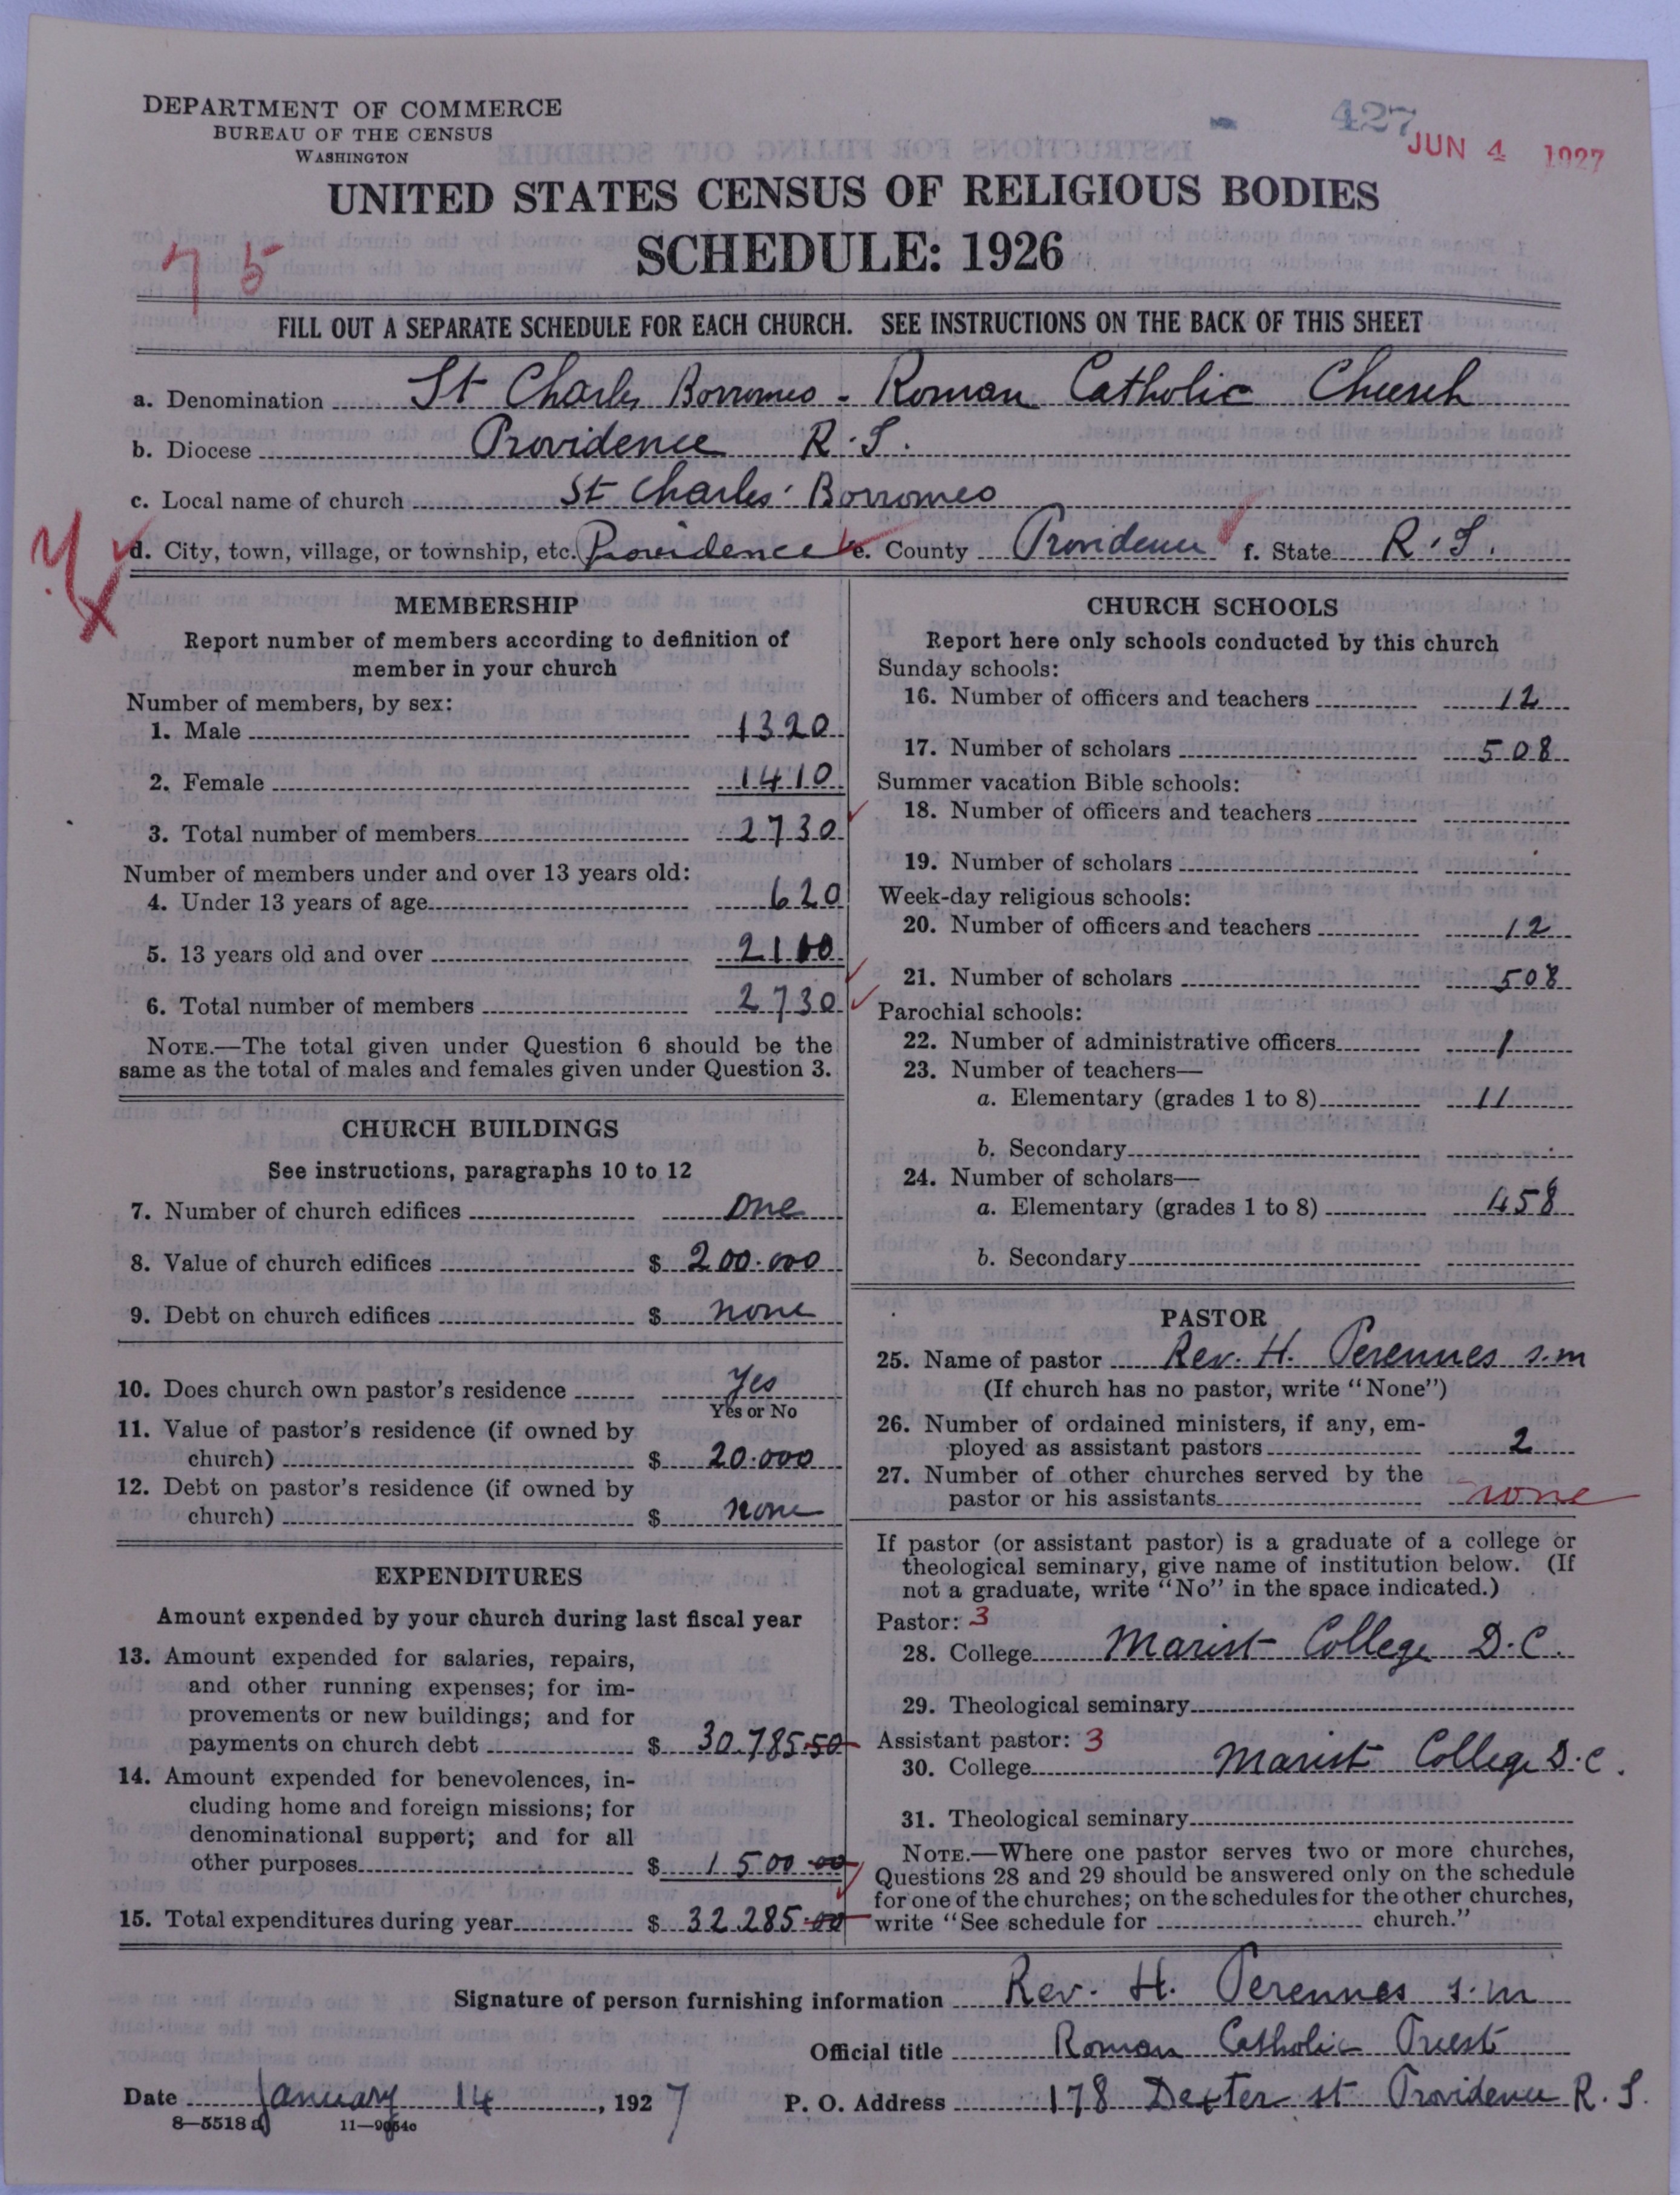 DEPARTMENT OF COMMERCE
BUREAU OF THE CENSUS
WASHINGTON
427
JUN 4 1927
UNITED STATES CENSUS OF RELIGIOUS BODIES
SCHEDULE: 1926
75
FILL OUT A SEPARATE SCHEDULE FOR EACH CHURCH. SEE INSTRUCTIONS ON THE BACK OF THIS SHEET
a. Denomination St Charles Borromeo - Roman Catholic Church
b. Diocese Providence R.I.
c. Local name of church St Charles Borromeo
d. City, town, village, or township, etc. Providence e. County Providence f. State R.I.
MEMBERSHIP
Report number of members according to definition of
member in your church
Number of members, by sex:
1. Male 1320
2. Female 1410
3. Total number of members 2730
Number of members under and over 13 years old:
4. Under 13 years of age 620
5. 13 years old and over 2110
6. Total number of members 2730
NOTE.—The total given under Question 6 should be the
same as the total of males and females given under Question 3.
CHURCH BUILDINGS
See instructions, paragraphs 10 to 12
7. Number of church edifices one
8. Value of church edifices $ 200.000
9. Debt on church edifices $ none
10. Does church own pastor's residence Yes
Yes or No
11. Value of pastor's residence (if owned by
church) $ 20.000
12. Debt on pastor's residence (if owned by
church) $ none
EXPENDITURES
Amount expended by your church during last fiscal year
13. Amount expended for salaries, repairs,
and other running expenses; for im-
provements or new buildings; and for
payments on church debt $ 30.785.50
14. Amount expended for benevolences, in-
cluding home and foreign missions; for
denominational support; and for all
other purposes $ 1500.00
15. Total expenditures during year $ 32.285.00
CHURCH SCHOOLS
Report here only schools conducted by this church
Sunday schools:
16. Number of officers and teachers 12
17. Number of scholars 508
Summer vacation Bible schools:
18. Number of officers and teachers
19. Number of scholars
Week-day religious schools:
20. Number of officers and teachers 12
21. Number of scholars 508
Parochial schools:
22. Number of administrative officers 1
23. Number of teachers—
a. Elementary (grades 1 to 8) 11
b. Secondary
24. Number of scholars—
a. Elementary (grades 1 to 8) 458
b. Secondary
PASTOR
25. Name of pastor Rev. H. Perennes s.m
(If church has no pastor, write "None")
26. Number of ordained ministers, if any, em-
ployed as assistant pastors 2
27. Number of other churches served by the
pastor or his assistants none
If pastor (or assistant pastor) is a graduate of a college or
theological seminary, give name of institution below. (If
not a graduate, write "No" in the space indicated.)
Pastor: 3
28. College Marist College D.C.
29. Theological seminary
Assistant pastor: 3
30. College Marist College D.C.
31. Theological seminary
NOTE.—Where one pastor serves two or more churches,
Questions 28 and 29 should be answered only on the schedule
for one of the churches; on the schedules for the other churches,
write "See schedule for church."
Signature of person furnishing information Rev. H. Perennes s.m
Official title Roman Catholic Priest
Date January 14, 1927 P. O. Address 178 Dexter st Providence R.I.
8—5518 a